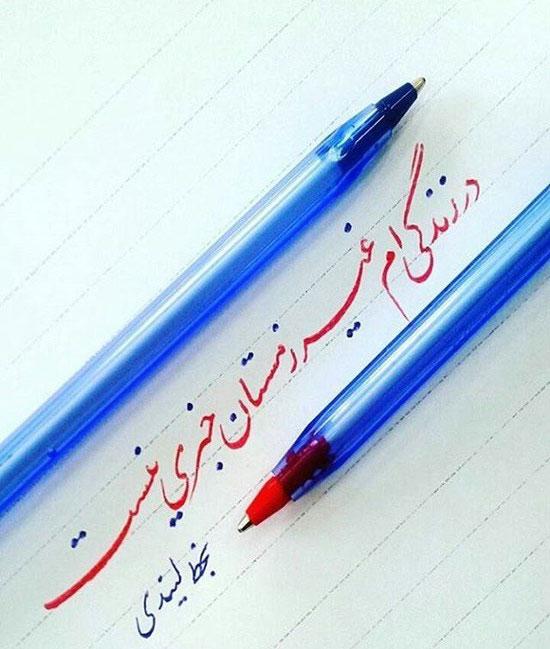 در زندگی ام غیر زمستان خبری نیست
بخط لیندی